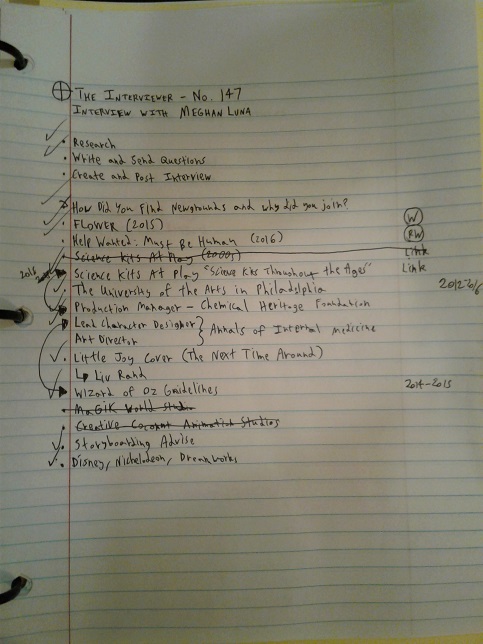 THE INTERVIEWER - No. 147
INTERVIEW WITH MEGHAN LUNA
Research
Write and Send Questions
Create and Post Interview
How Did You Find Newgrounds and why did you join?
FLOWER (2015) W
Help Wanted: Must Be Human (2016) RW
Science Kits At Play (2000s) Link
Science Kits At Play "Science Kits Throughout the Ages" Link
The University of the Arts in Philadelphia
Production Manager - Chemical Heritage Foundation
Lead Character Designer } Annals of Internal Medicine
Art Director
Little Joy Cover (The Next Time Around)
Liv Rand
Wizard of Oz Guidelines 2014-2015
MaGiK World
Creative Coconut Animation Studios
Storyboarding Advise
Disney, Nickelodeon, DreamWorks